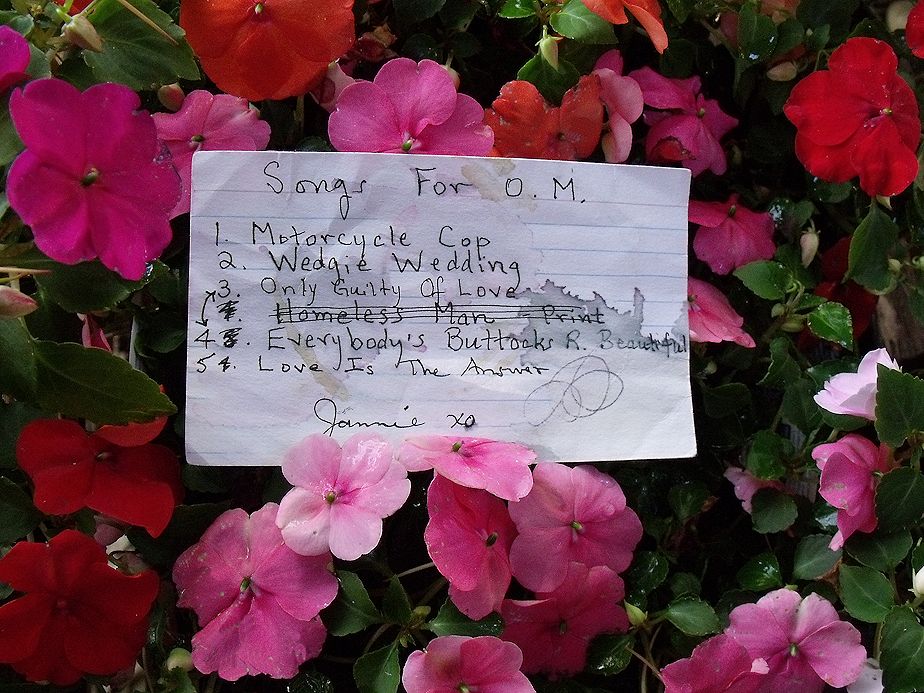 Songs For O.M.
1. Motorcycle Cop
2. Wedgie Wedding
3. Only Guilty Of Love
Homeless Man Print
4 Everybody's Buttocks R. Beautiful
5 4. Love Is The Answer
Jannie xo